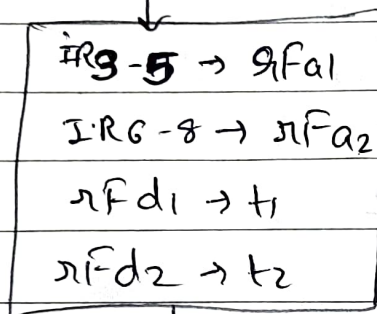 IR3-5 → rFa1
I.R6-8 → rFa2
rFd1 → t1
rFd2 → t2